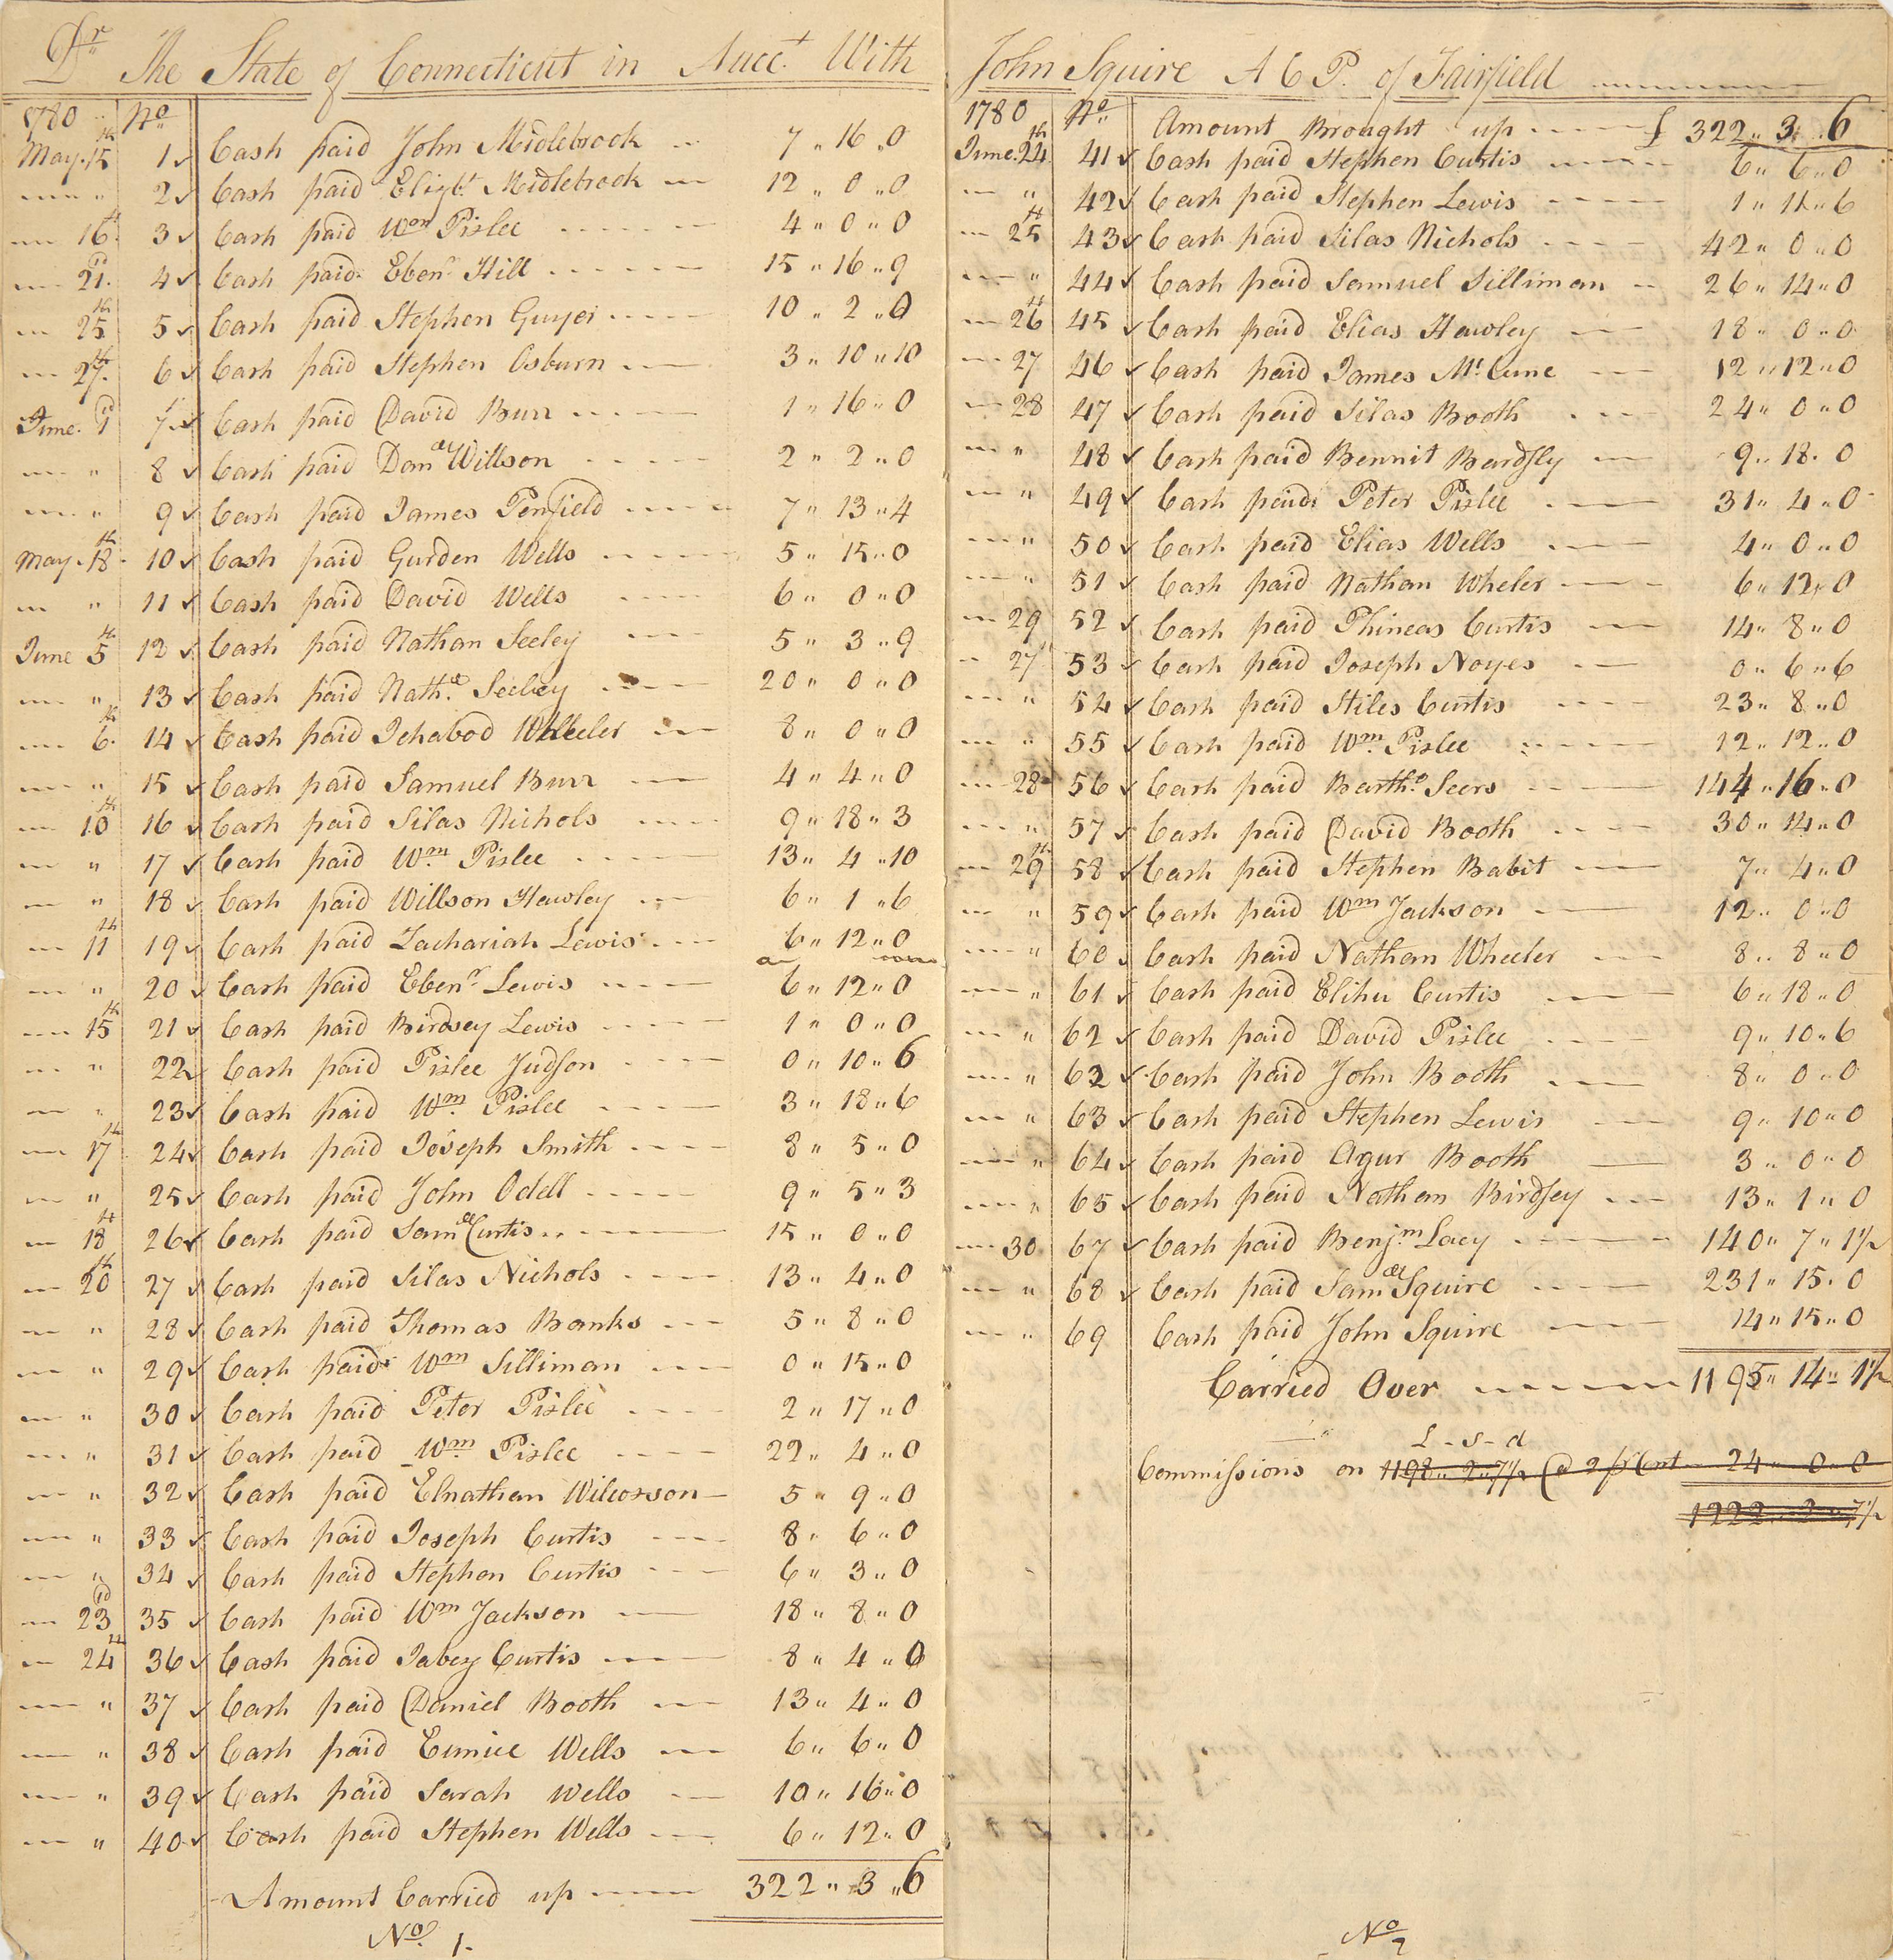 Dr The State of Connecticut in Accct With
1780 No
May. 15th 1 Cash paid John Midlebrook 7 " 16 " 0
" 2 Cash paid Elizbt Midlebrook 12 " 0 " 0
16th 3 Cash paid Wm Pislee 4 " 0 " 0
21st 4 Cash paid Ebenr Hill 15 " 16 " 9
25th 5 Cash paid Stephen Guyer 10 " 2 " 0
27th 6 Cash paid Stephen Osburn 3 " 10 " 10
June. 1st 7 Cash paid David Burr 1 " 16 " 0
" 8 Cash paid Danael Willson 2 " 2 " 0
" 9 Cash paid James Penfield 7 " 13 " 4
May. 18th 10 Cash paid Gurden Wells 5 " 15 " 0
" 11 Cash paid David Wells 6 " 0 " 0
June 5th 12 Cash paid Nathan Seeley 5 " 3 " 9
" 13 Cash paid Nathel Seeley 20 " 0 " 0
6th 14 Cash paid Ichabod Wheeler 8 " 0 " 0
" 15 Cash paid Samuel Burr 4 " 4 " 0
10th 16 Cash paid Silas Nichols 9 " 18 " 3
" 17 Cash paid Wm Pislee 13 " 4 " 10
" 18 Cash paid Willson Hawley 6 " 1 " 6
11th 19 Cash paid Zachariah Lewis 6 " 12 " 0
" 20 Cash paid Ebenr Lewis 6 " 12 " 0
15th 21 Cash paid Birdsey Lewis 1 " 0 " 0
" 22 Cash paid Pislee Judson 0 " 10 " 6
" 23 Cash paid Wm Pislee 3 " 18 " 6
17th 24 Cash paid Joseph Smith 8 " 5 " 0
" 25 Cash paid John Odell 9 " 5 " 3
18th 26 Cash paid Samel Curtis 15 " 0 " 0
20th 27 Cash paid Silas Nichols 13 " 4 " 0
" 28 Cash paid Thomas Banks 5 " 8 " 0
" 29 Cash paid Wm Silliman 0 " 15 " 0
" 30 Cash paid Peter Pislee 2 " 17 " 0
" 31 Cash paid Wm Pislee 22 " 4 " 0
" 32 Cash paid Elnathan Wilcoxson 5 " 9 " 0
" 33 Cash paid Joseph Curtis 8 " 6 " 0
" 34 Cash paid Stephen Curtis 6 " 3 " 0
23d 35 Cash paid Wm Jackson 18 " 8 " 0
24 36 Cash paid Jabez Curtis 8 " 4 " 0
" 37 Cash paid Daniel Booth 13 " 4 " 0
" 38 Cash paid Eunice Wells 6 " 6 " 0
" 39 Cash paid Sarah Wells 10 " 16 " 0
" 40 Cash paid Stephen Wells 6 " 12 " 0
Amount Carried up 322 " 3 " 6
No. 1.
John Squire A C P. of Fairfield
1780 No. Amount Brought up £ 322 " 3 " 6
June. 24th 41 Cash paid Stephen Curtis 6 " 6 " 0
" 42 Cash paid Stephen Lewis 1 " 11 " 6
25th 43 Cash paid Silas Nichols 42 " 0 " 0
" 44 Cash paid Samuel Silliman 26 " 14 " 0
26th 45 Cash paid Elias Hawley 18 " 0 " 0
27 46 Cash paid James Mc Cune 12 " 12 " 0
28 47 Cash paid Silas Booth 24 " 0 " 0
" 48 Cash paid Bennit Bardsly 9 " 18 " 0
" 49 Cash paid Peter Pislee 31 " 4 " 0
" 50 Cash paid Elias Wells 4 " 0 " 0
" 51 Cash paid Nathan Wheler 6 " 12 " 0
29 52 Cash paid Phineas Curtis 14 " 8 " 0
27 53 Cash paid Joseph Noyes 0 " 6 " 6
" 54 Cash paid Stiles Curtis 23 " 8 " 0
" 55 Cash paid Wm Pislee 12 " 12 " 0
28 56 Cash paid Bartho Seers 144 " 16 " 0
" 57 Cash paid David Booth 30 " 14 " 0
29th 58 Cash paid Stephen Babit 7 " 4 " 0
" 59 Cash paid Wm Jackson 12 " 0 " 0
" 60 Cash paid Nathan Wheeler 8 " 8 " 0
" 61 Cash paid Elihu Curtis 6 " 18 " 0
" 62 Cash paid David Pislee 9 " 10 " 6
" 62 Cash paid John Booth 8 " 0 " 0
" 63 Cash paid Stephen Lewis 9 " 10 " 0
" 64 Cash paid Agur Booth 3 " 0 " 0
" 65 Cash paid Nathan Birdsey 13 " 1 " 0
30 67 Cash paid Benjm Lacy 140 " 7 " 1½
" 68 Cash paid Samael Squire 231 " 15 " 0
" 69 Cash paid John Squire 14 " 15 " 0
Carried Over 1195 " 14 " 1½
L - S - d
Commissions on 1198 " 2 " 7½ @ 2 pr Cent 24 " 0 " 0
1222 " 2 " 7½
No 2